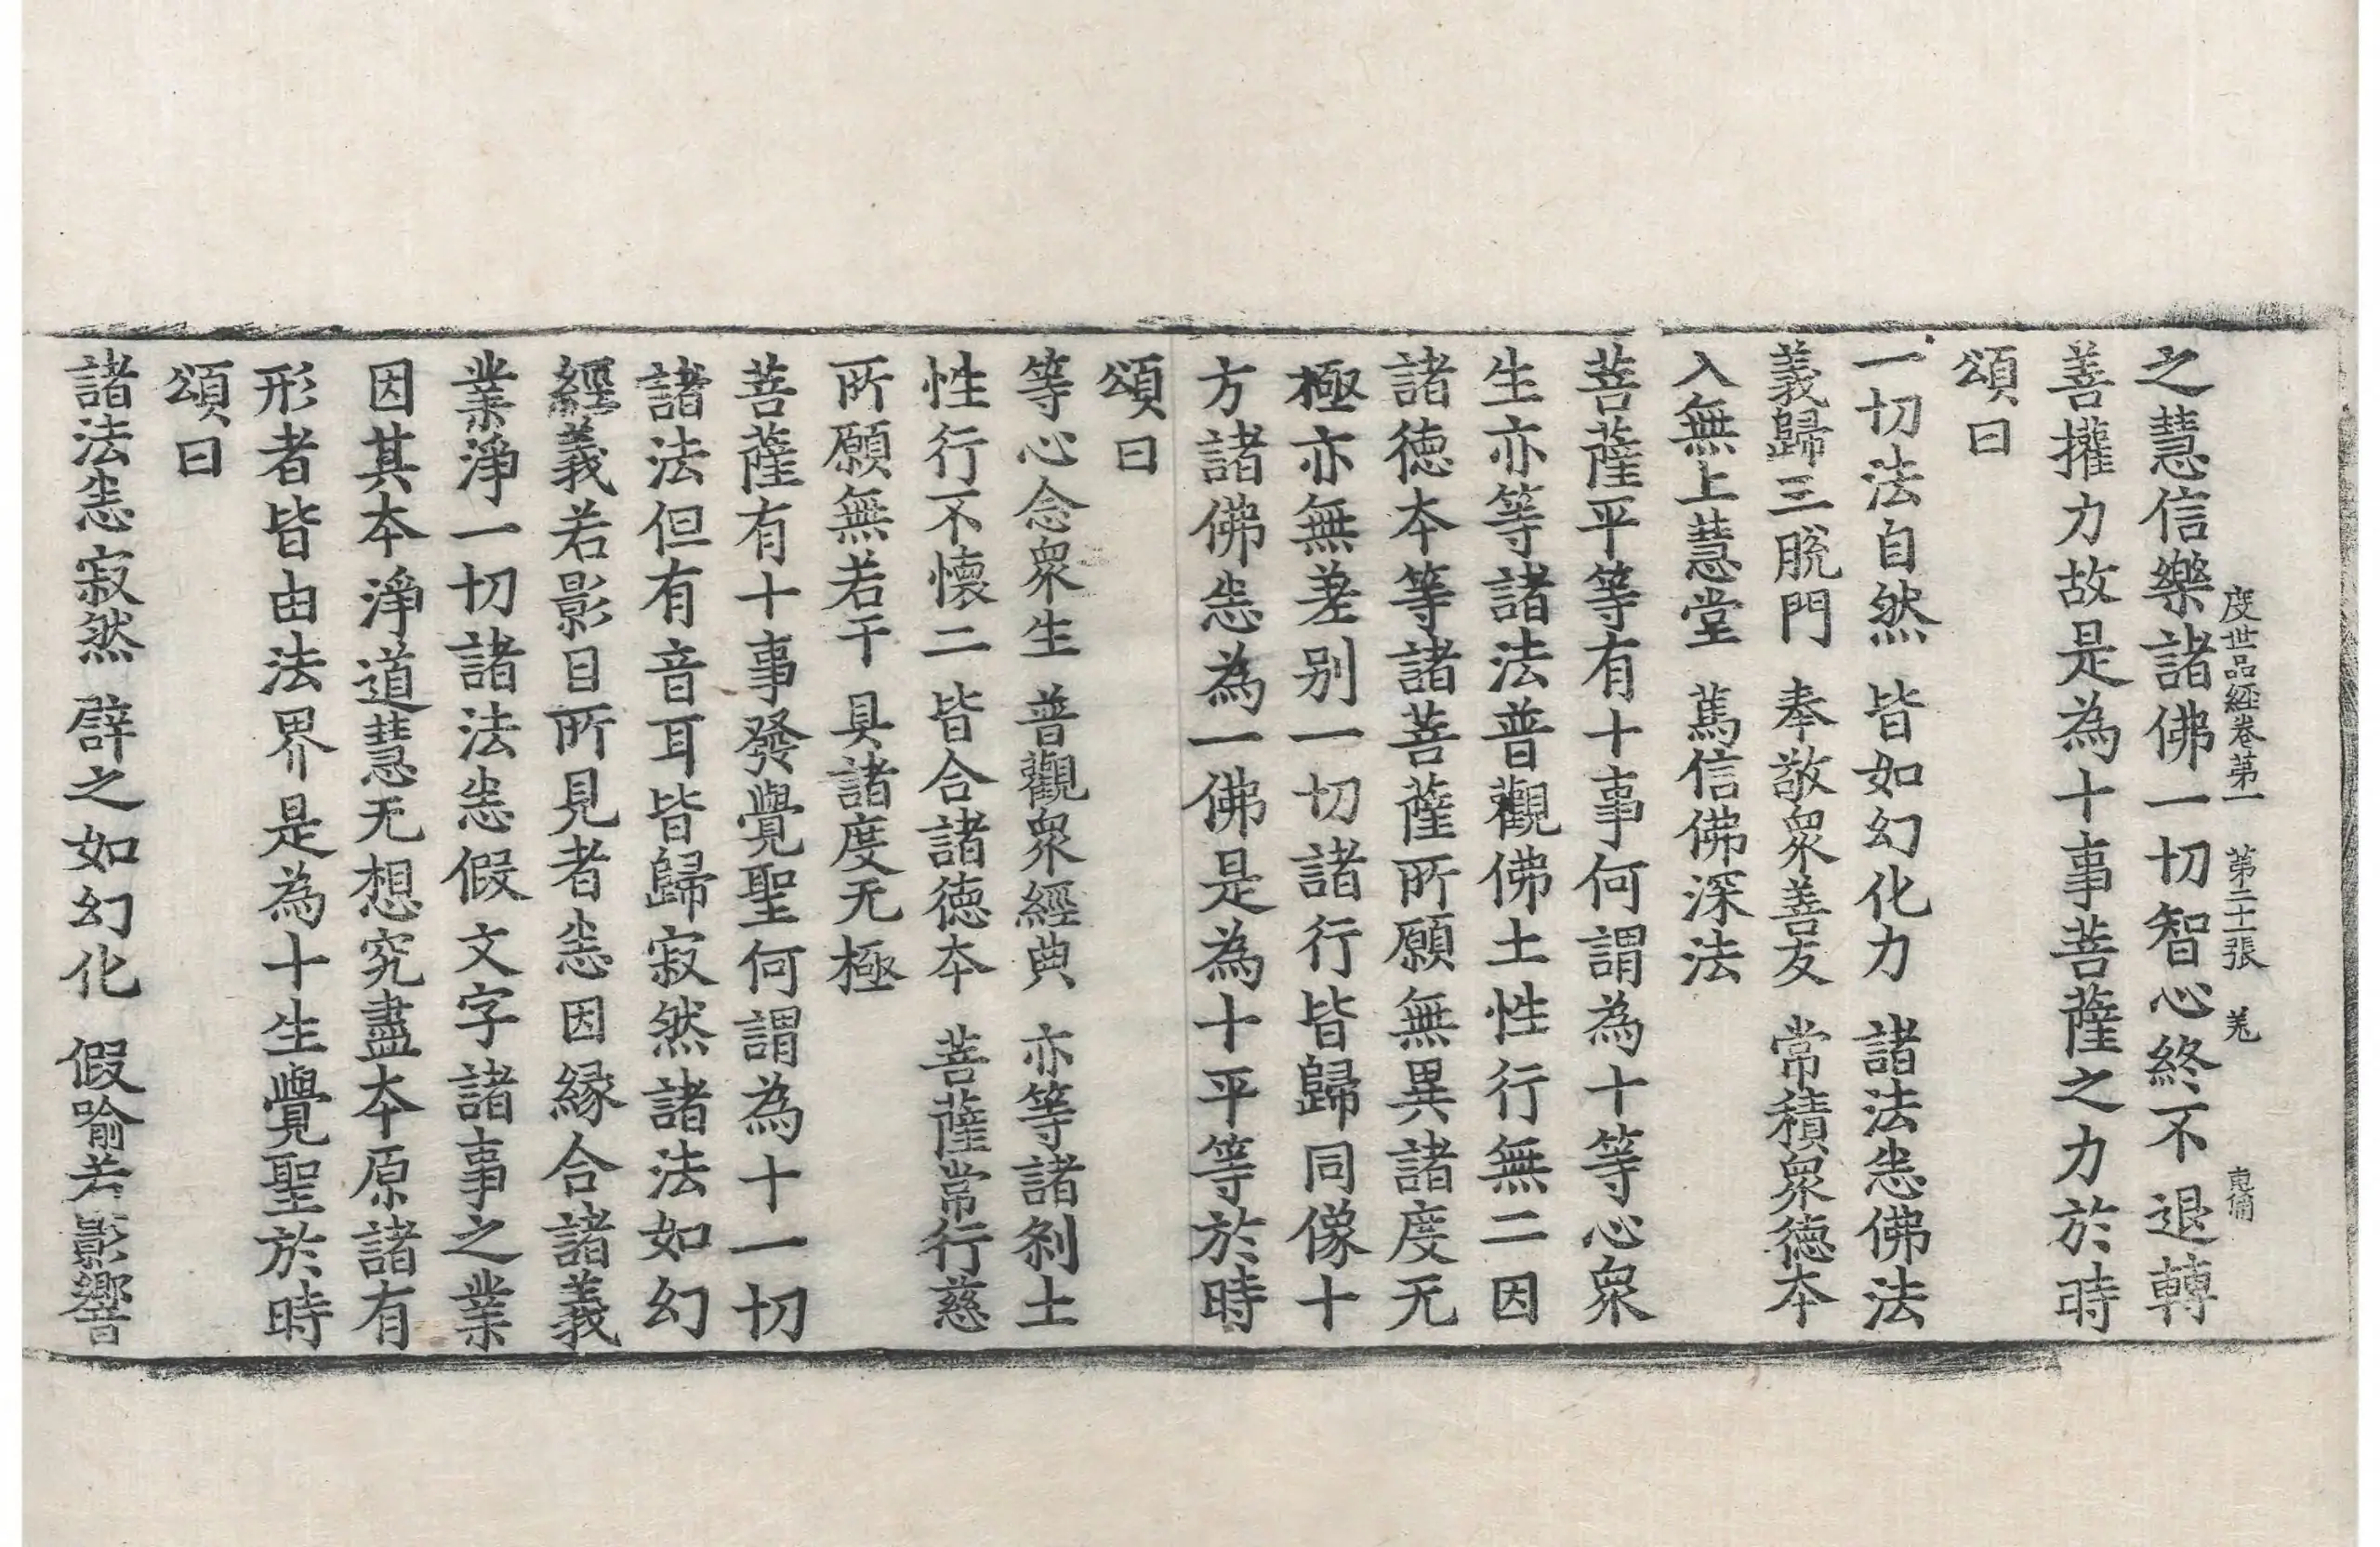 度世品經卷第一 第二十張 羌
之慧信樂諸佛一切智心終不退轉
善攉力故是為十事菩薩之力於時
頌曰
一切法自然 皆如幻化力 諸法恙佛法
義歸三脫門 奉敬衆善友 常積衆德本
入無上慧堂 篤信佛深法
菩薩平等有十事何謂為十等心衆
生亦等諸法普觀佛土性行無二因
諸德本等諸菩薩所願無異諸度无
極亦無差别一切諸行皆歸同像十
方諸佛恙為一佛是為十平等於時
頌曰
等心念衆生 普觀衆經典 亦等諸刹土
性行不懷二 皆合諸德本 菩薩常行慈
所願無若干 具諸度无極
菩薩有十事發覺聖何謂為十一切
諸法但有音耳皆歸寂然諸法如幻
經義若影目所見者恙因緣合諸義
業淨一切諸法恙假文字諸事之業
因其本淨道慧无想究盡本原諸有
形者皆由法界是為十生覺聖於時
頌曰
諸法恙寂然 辟之如幻化 假喻若影響